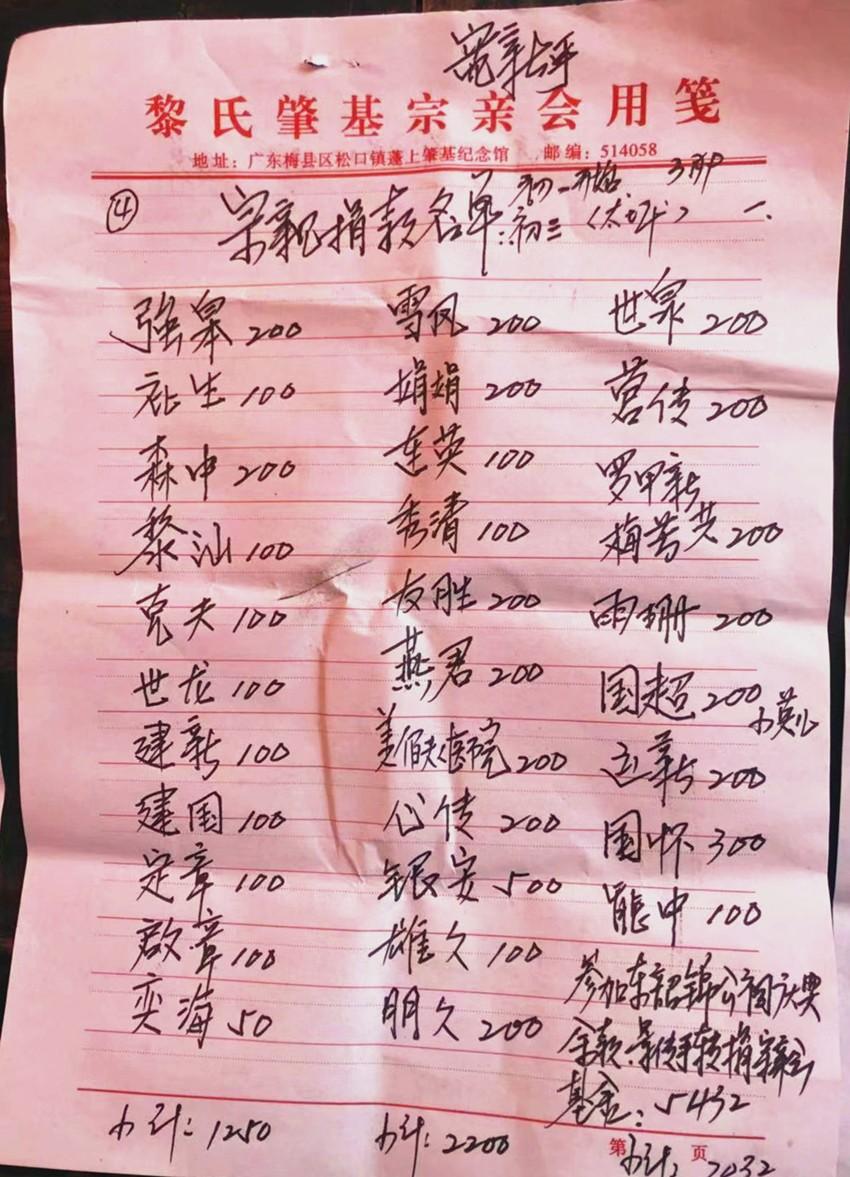 黎氏肇基宗亲会用笺
地址：广东梅县区松口镇蓬上肇基纪念馆 邮编：514058
④ 宗亲捐款名单：初三（太坪） 一、
強皋 200
祉生 100
森中 200
黎汕 100
克夫 100
世龙 100
建新 100
建国 100
定章 100
啟章 100
奕海 50
小计：1250
雪凤 200
娟娟 200
连英 100
秀清 100
友胜 200
燕君 200
200
心传 200
银安 500
雄久 100
朋久 200
小计：2200
世泉 200
营传 200
罗甲新
梅芳 200
雨珊 200
国超 200
小英
运新 200
国怀 300
能中 100
参加东韶锦公祠庆典
余款
基金：5432
第 页
小计：7032